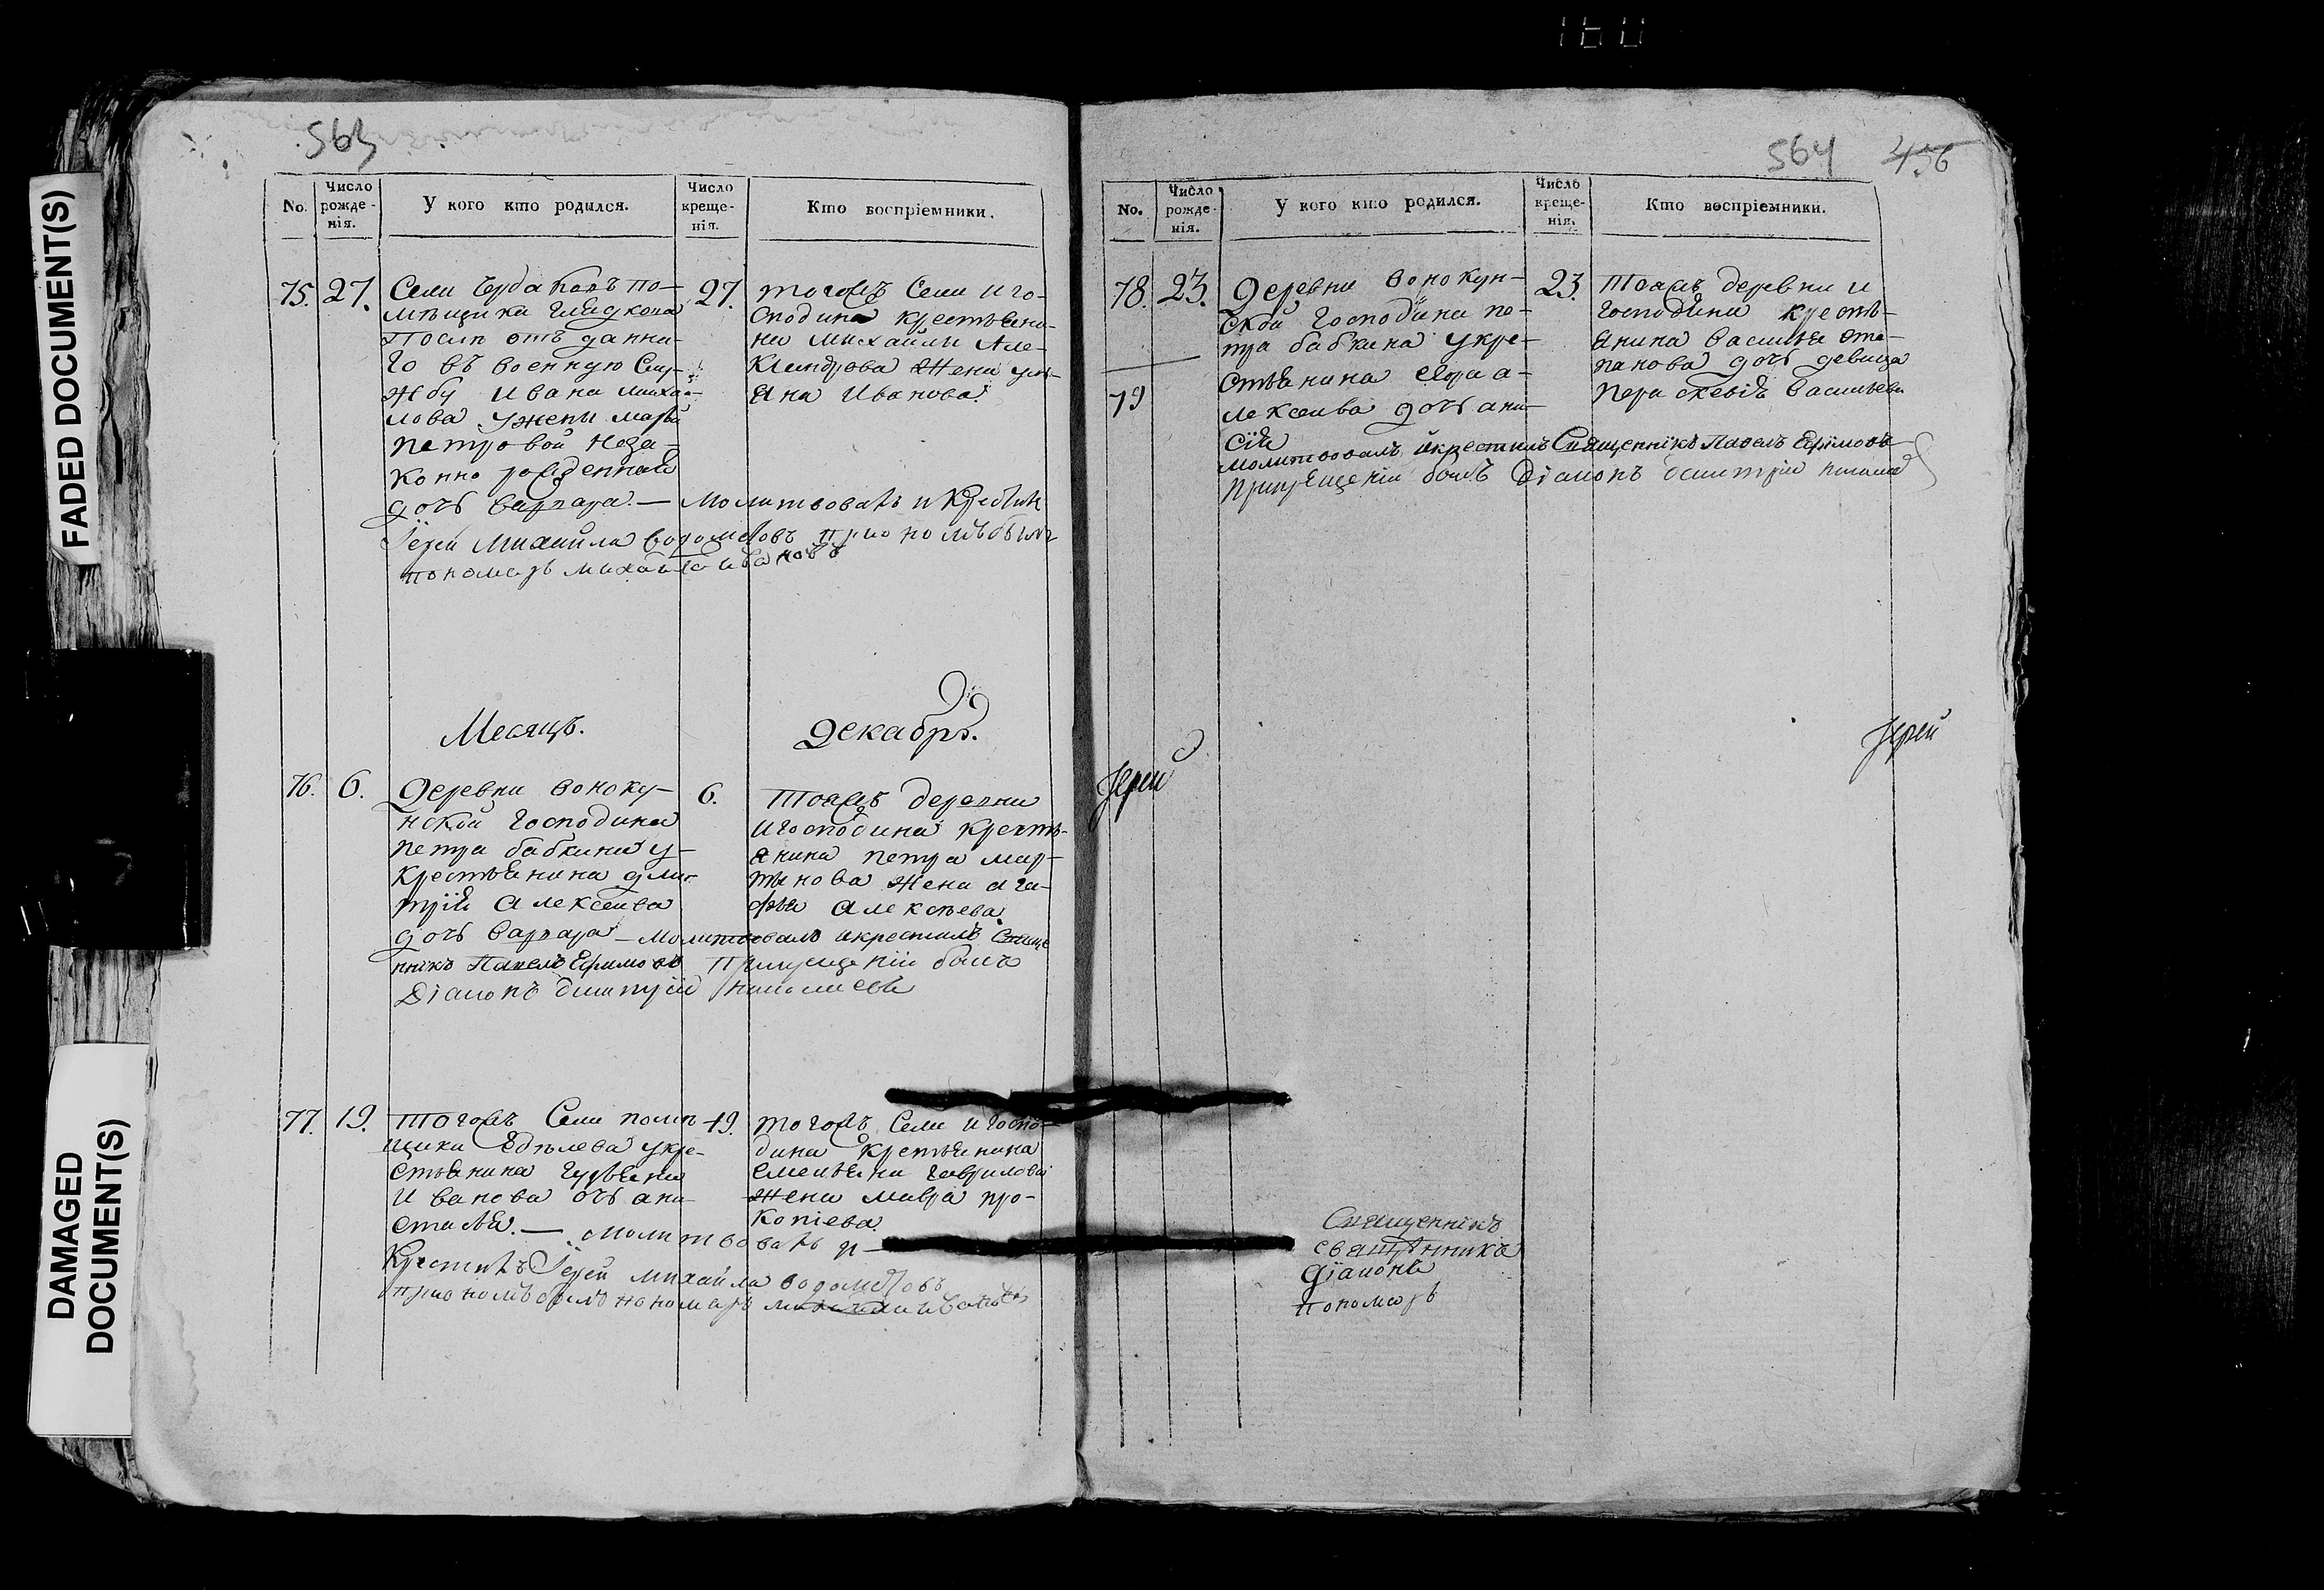 FADED DOCUMENT(S)
DAMAGED
DOCUMENT(S)
563
No.
Число
рожде-
нія.
У кого кто родился.
Число
креще-
нія.
Кто воспріемники.
75.
27.
Села
по-
мѣщика Гладкова
после отъ данна-
го въ военную слу-
жбу Ивана Михаи-
лова ужены Марьи
Петровой неза-
конно рожденная
дочь Варвара. — Молитвовалъ и крестилъ
Іерей Михаила
при ономъ былъ
пономарь Михаила Ивановъ
27.
тогожъ села и го-
сподина крестьяни-
на Михаилы Але-
ксандрова жена улы-
яна Иванова.
Месяцъ.
Декабрь.
76.
6.
Деревни воноку-
нской господина
Петра бабкина у-
крестьянина дми-
трія Алексеива
дочь Варвара — Молитвовалъ икрестилъ Свяще
нникъ Павелъ Ефимовъ
Прикрещеніи былъ
Діаконъ димитрій
6.
Тояжъ деревни
игосподина крестъ-
янина Петра мар-
тынова жена ага-
фья Алексѣева.
77.
19.
Тогожъ Села помѣ-
щика
укре-
стьянина
Иванова очь ана-
стасья. — Молитвовалъ и —
Крестилъ Іерей Михаила
при номъ былъ пономарь
19.
тогожъ Села игоспо-
дина крестьянина
емельяна гаврилова
жена мавра про-
копіева.
564
456
No.
Число
рожде-
нія.
У кого кто родился.
Число
креще-
нія.
Кто воспріемники.
78.
23.
Деревни вонокун-
ской господина пе-
тра бабкина укре-
стьянина
а-
лексеива дочь ани-
сія
молитвовалъ икрестилъ Священникъ Павелъ Ефимовъ
Прикрещеніи былъ Діаконъ димитрій
79
23.
Тояжъ деревни и
господина кресть-
янина василья сте-
панова дочь девица
Параскевія Васильева
Іерей
Іерей
Священникъ
священника
діаконъ
пономарь